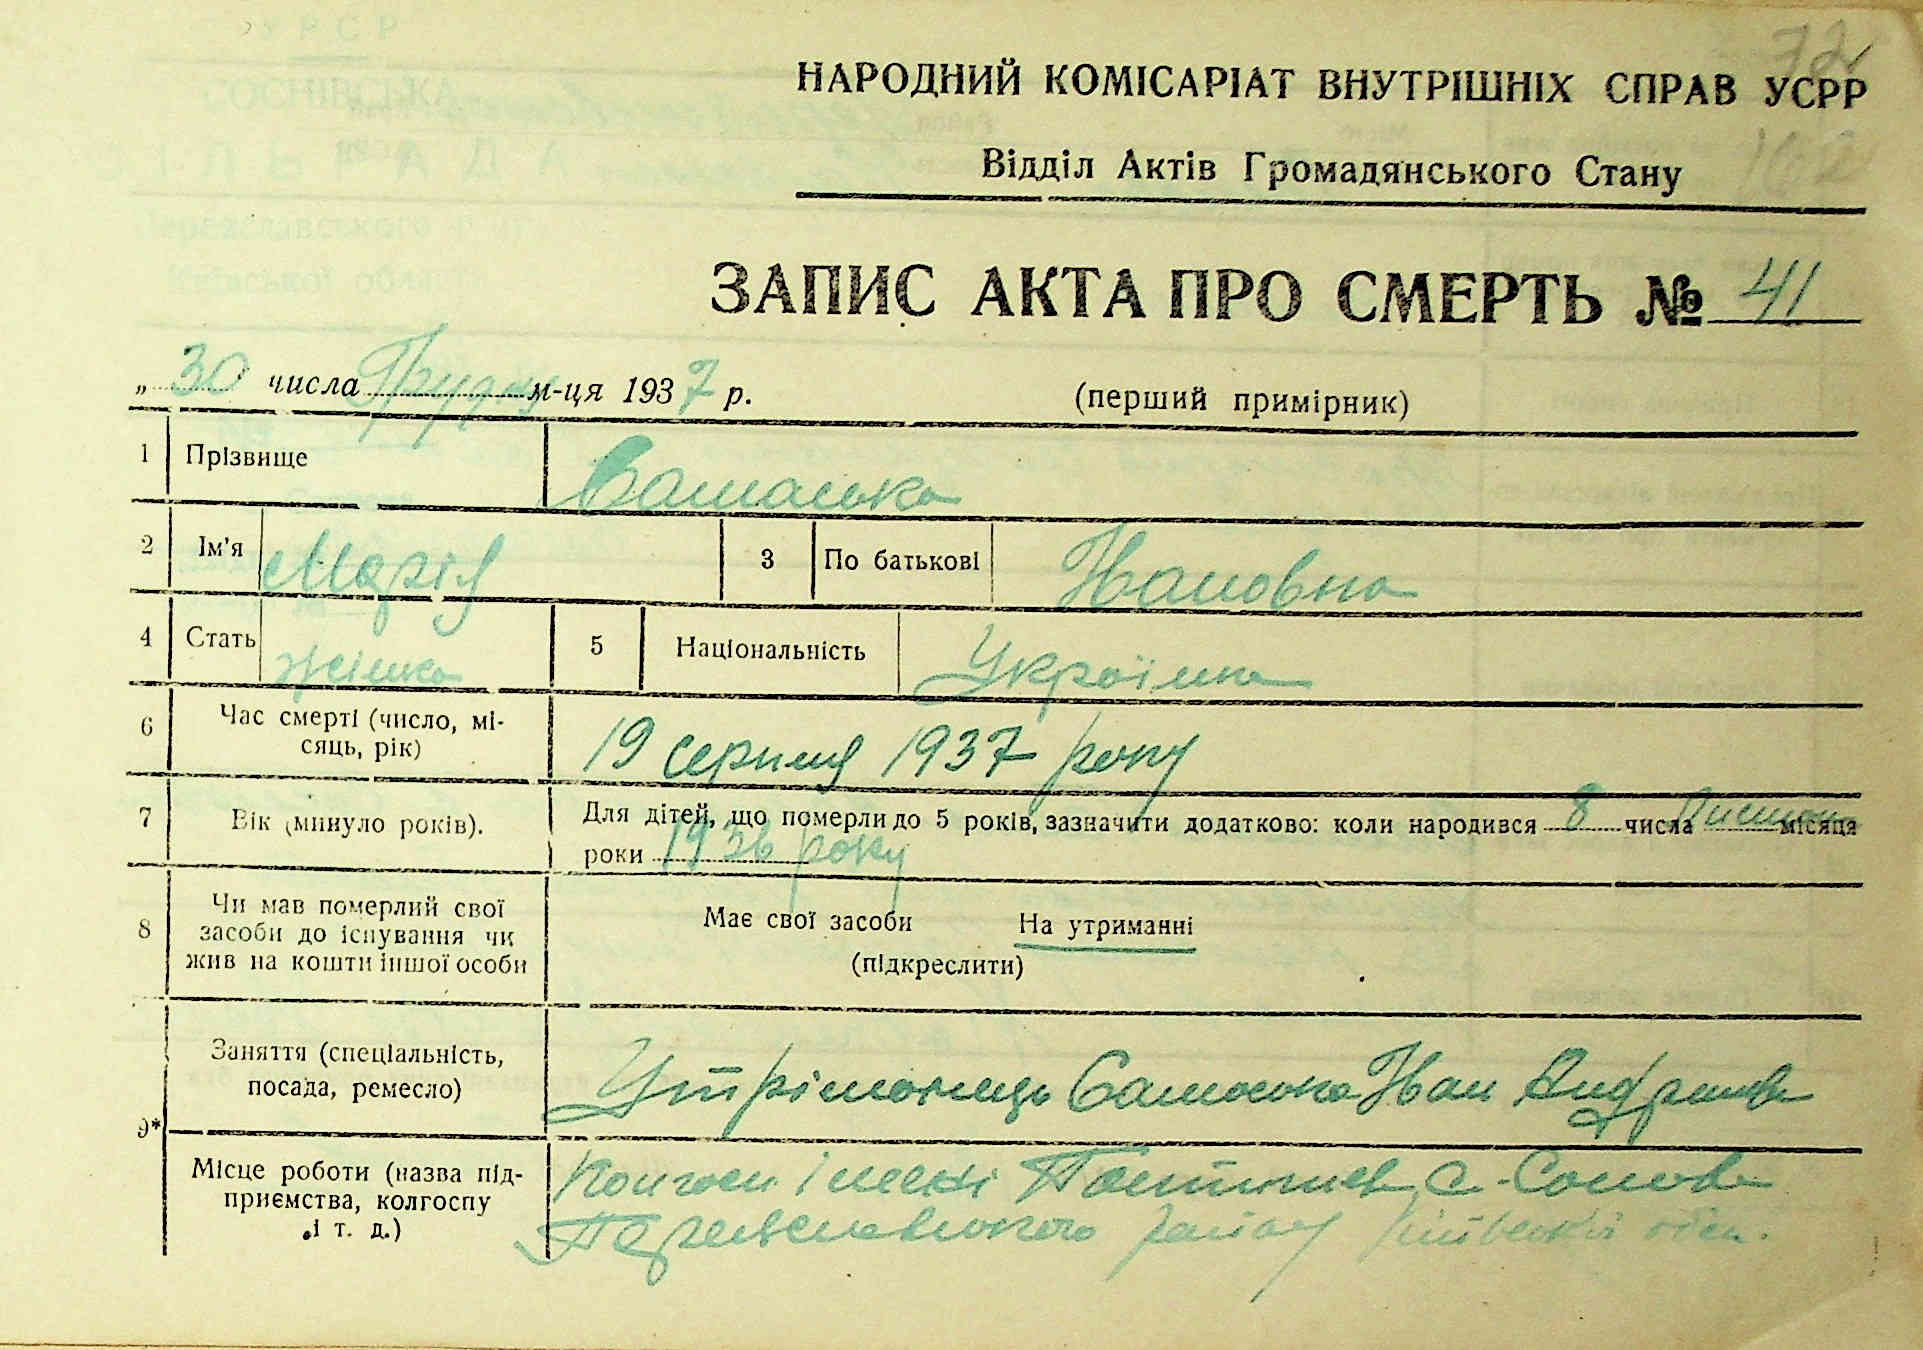 УРСР
СОСНІВСЬКА
СІЛЬРАДА
Переяславського р-ну
Київської області
72
162
НАРОДНИЙ КОМІСАРІАТ ВНУТРІШНІХ СПРАВ УСРР
Відділ Актів Громадянського Стану
ЗАПИС АКТА ПРО СМЕРТЬ № 41
„30 числа Грудня м-ця 1937 р. (перший примірник)
1 Прізвище
2 Ім'я Марія 3 По батькові Івановна
4 Стать жінка 5 Національність Українка
6 Час смерті (число, мі-
сяць, рік) 19 серпня 1937 року
7 Вік (минуло років). Для дітей, що померли до 5 років, зазначити додатково: коли народився 8 числа Листопа місяця
роки 1936 року
8 Чи мав померлий свої
засоби до існування чи
жив на кошти іншої особи
Має свої засоби На утриманні
(підкреслити)
9*
Заняття (спеціальність,
посада, ремесло)
Іван
Місце роботи (назва під-
приємства, колгоспу
і т. д.)
Колгосп імені с.
Переяславського району Київської обл.